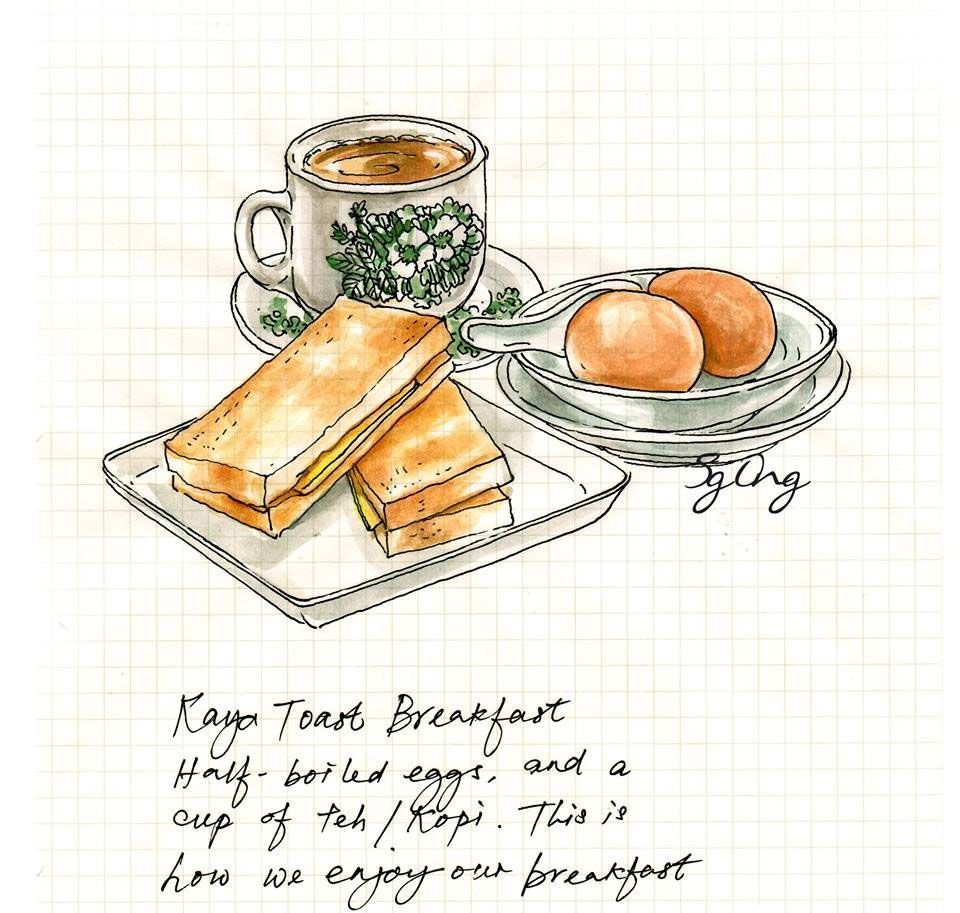 SgOng
Kaya Toast Breakfast
Half-boiled eggs, and a
cup of Teh/Kopi. This is
how we enjoy our breakfast